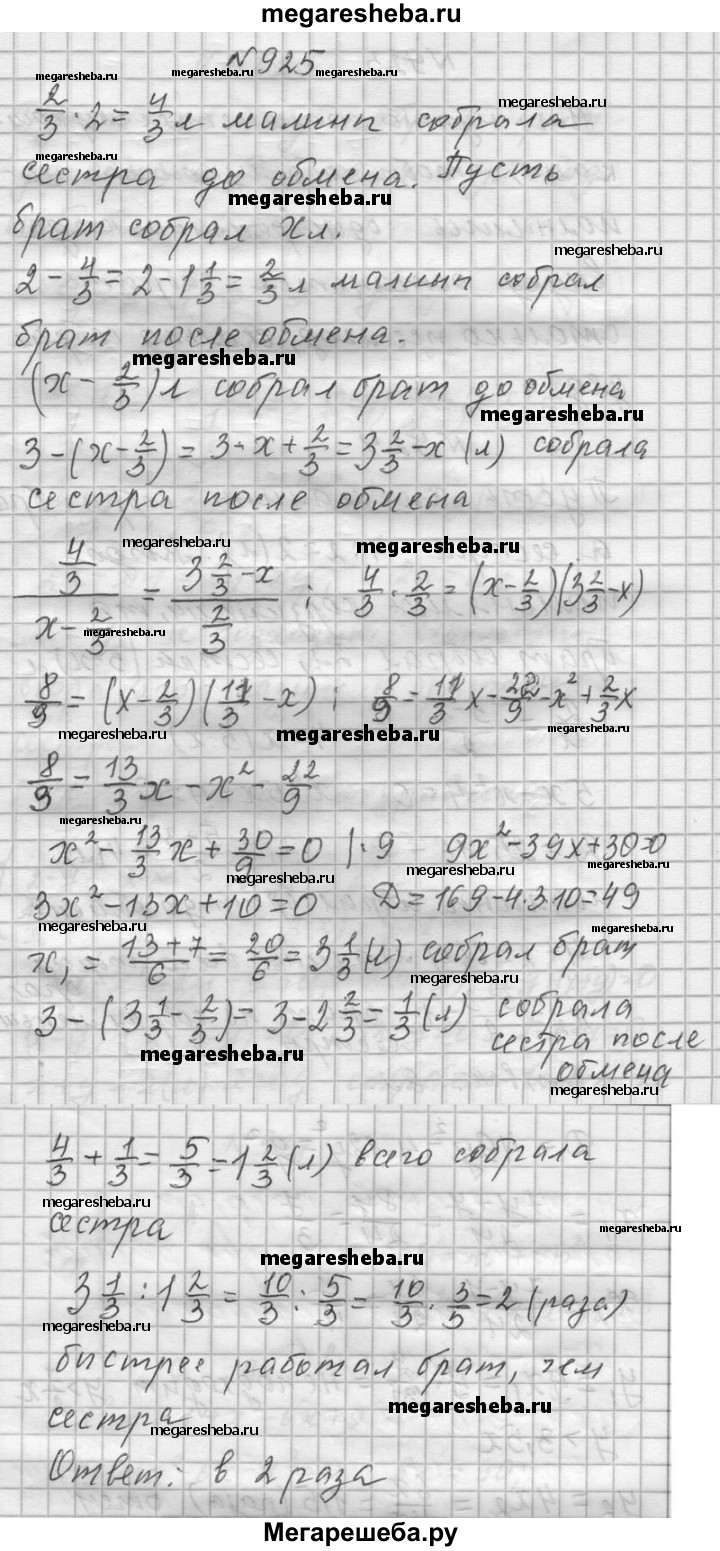 megaresheba.ru
N925
megaresheba.ru megaresheba.ru megaresheba.ru
megaresheba.ru
2/3 · 2 = 4/3 л малины собрала
megaresheba.ru
сестра до обмена. Пусть
megaresheba.ru
брат собрал x л.
megaresheba.ru
2 - 4/3 = 2 - 1 1/3 = 2/3 л малины собрал
брат после обмена.
megaresheba.ru
(x - 2/3) л собрал брат до обмена
megaresheba.ru
3 - (x - 2/3) = 3 - x + 2/3 = 3 2/3 - x (л) собрала
сестра после обмена
megaresheba.ru megaresheba.ru
(4/3)/(x - 2/3) = (3 2/3 - x)/(2/3) ; 4/3 · 2/3 = (x - 2/3)(3 2/3 - x)
megaresheba.ru megaresheba.ru
8/9 = (x - 2/3)(11/3 - x) ; 8/9 = 11/3 x - 22/9 - x² + 2/3 x
megaresheba.ru megaresheba.ru megaresheba.ru
8/9 = 13/3 x - x² - 22/9
megaresheba.ru
x² - 13/3 x + 30/9 = 0 | · 9 9x² - 39x + 30 = 0
megaresheba.ru megaresheba.ru
3x² - 13x + 10 = 0 D = 169 - 4·3·10 = 49
megaresheba.ru megaresheba.ru
x₁ = (13 + 7)/6 = 20/6 = 3 1/3 (л) собрал брат
megaresheba.ru
3 - (3 1/3 - 2/3) = 3 - 2 2/3 = 1/3 (л) собрала
сестра после
megaresheba.ru
обмена
megaresheba.ru
4/3 + 1/3 = 5/3 = 1 2/3 (л) всего собрала
megaresheba.ru
сестра
megaresheba.ru
megaresheba.ru
3 1/3 : 1 2/3 = 10/3 : 5/3 = 10/3 · 3/5 = 2 (раза)
megaresheba.ru
быстрее работал брат, чем
megaresheba.ru
сестра
megaresheba.ru
Ответ: в 2 раза
Мегарешеба.ру